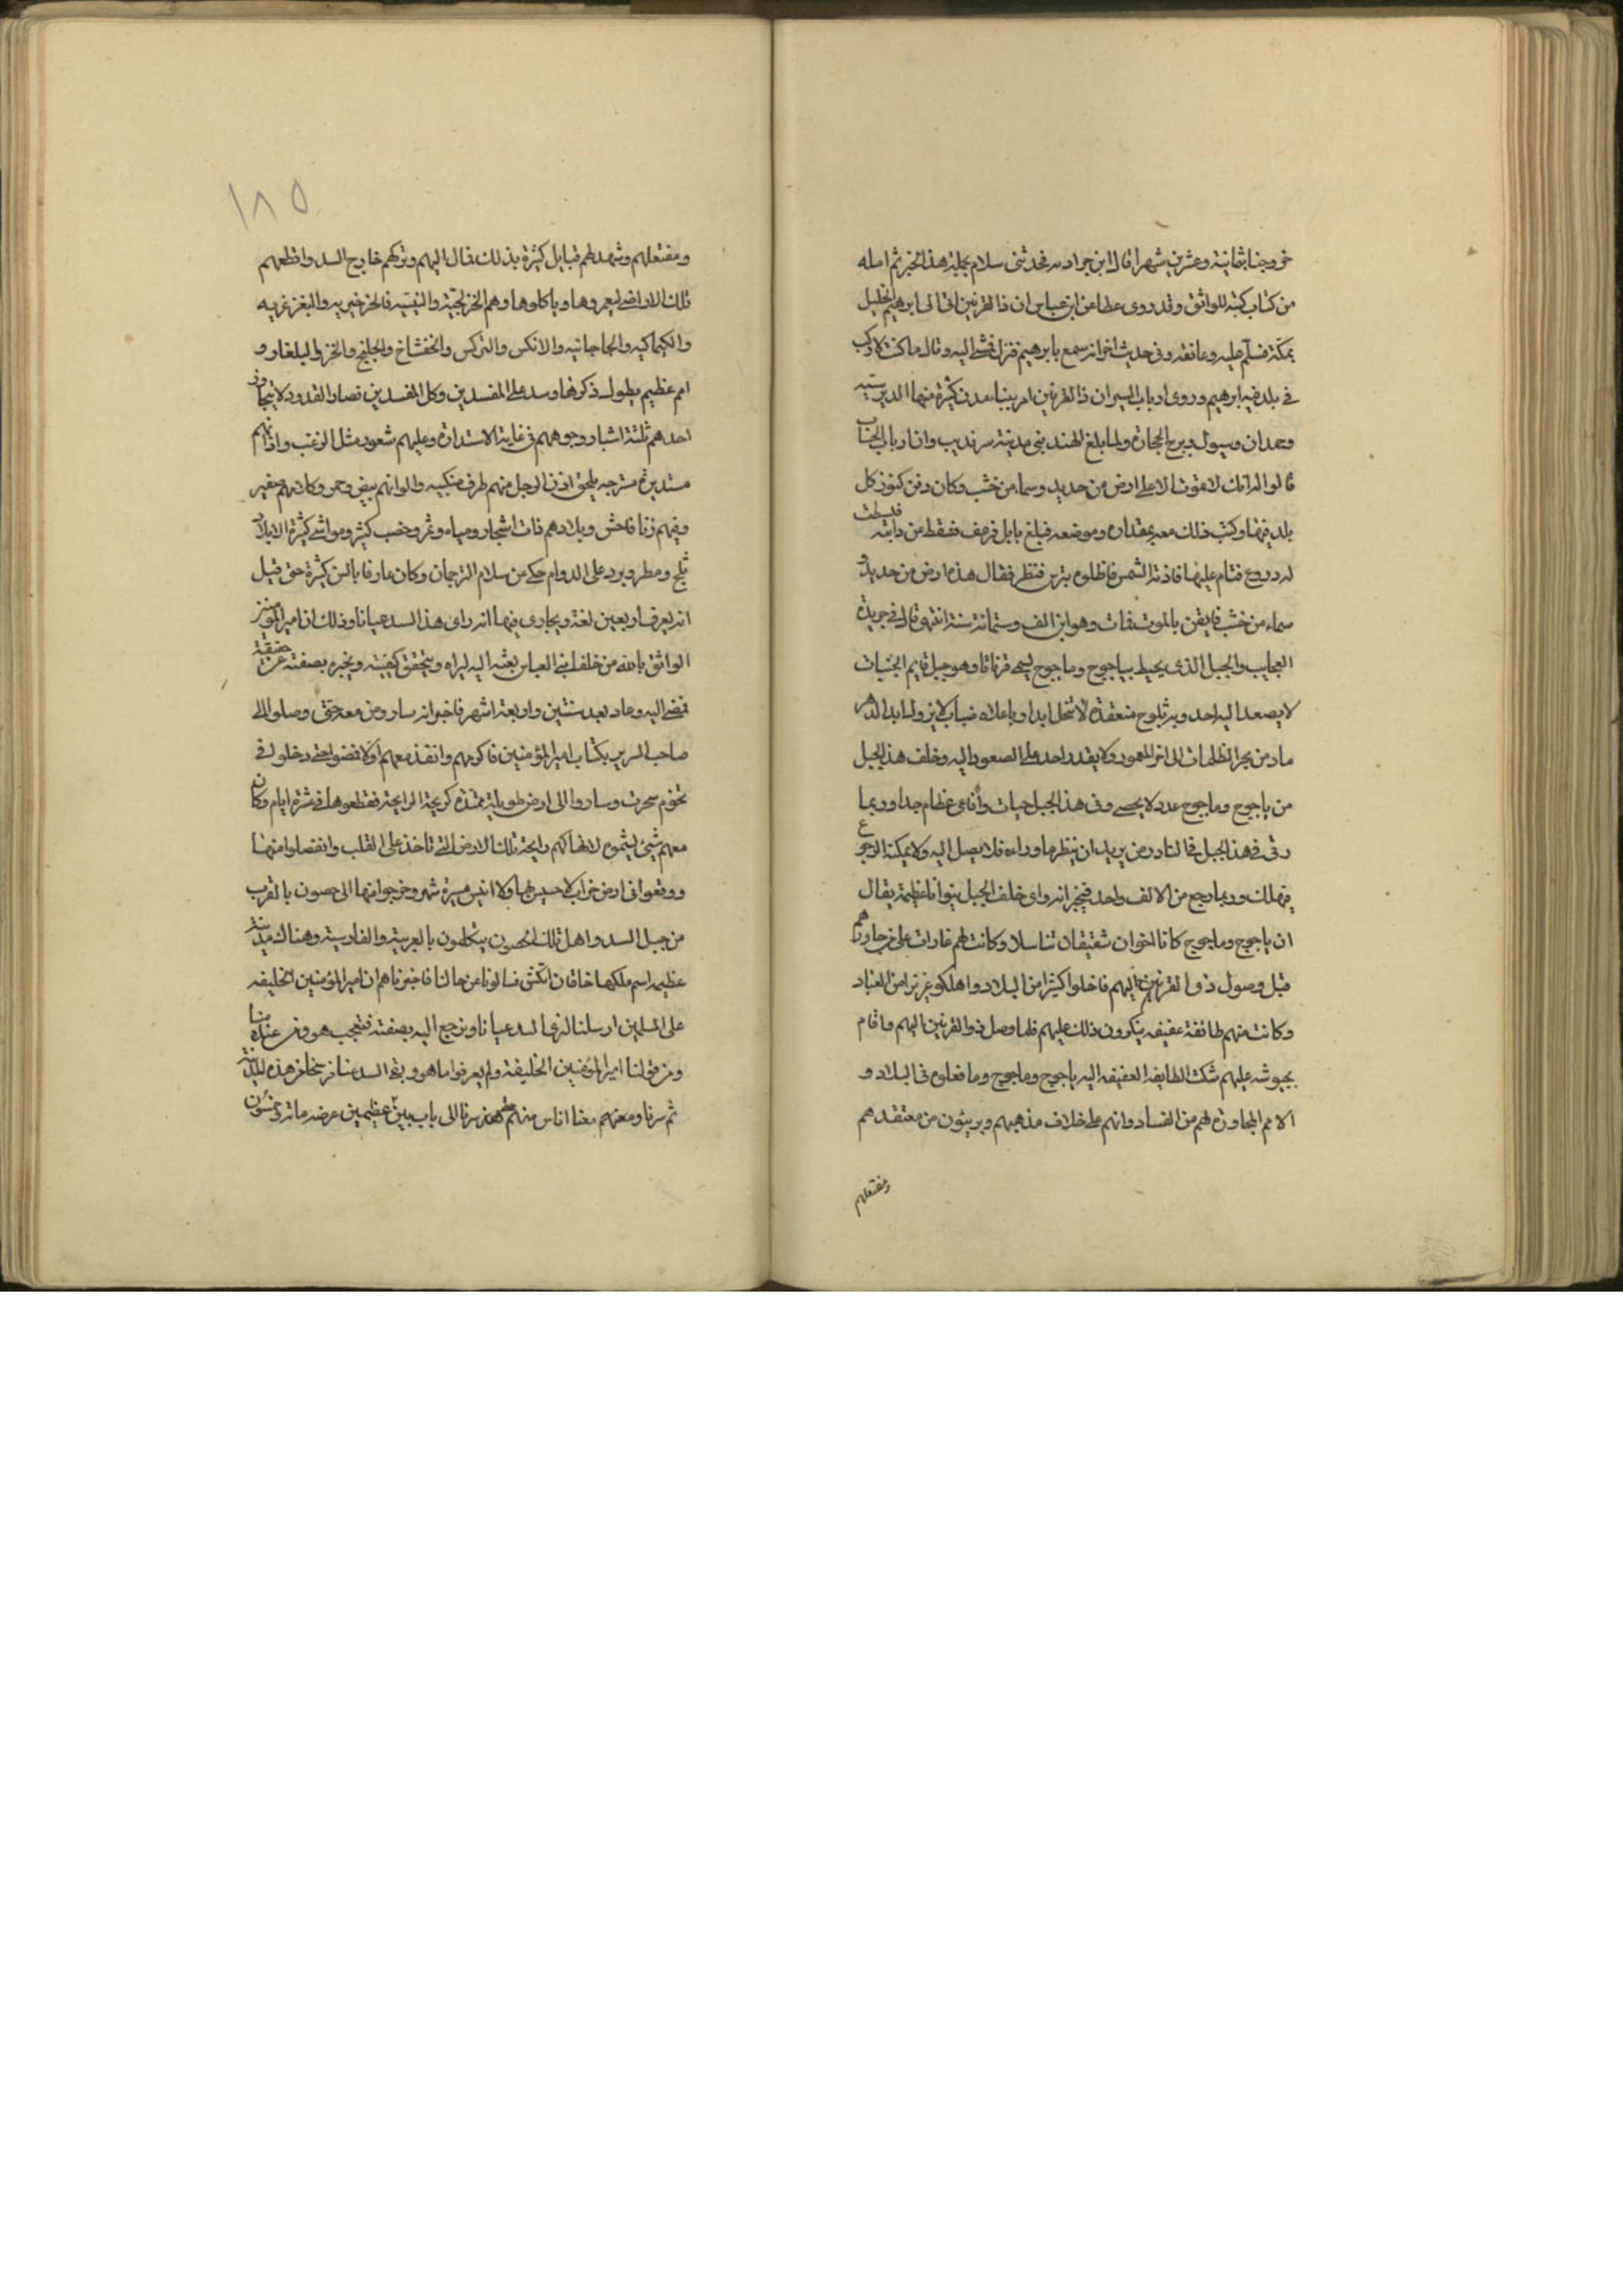 خروجنا ثمانية وعشرين شهرا قال ابن خرداد به فحدثنى سلام بجملة هذا الخبر ثم املاه
من كتاب كتبه للواثق وقد روى عطا عن ابن عباس ان ذا القرنين اتى الى ابرهيم الخليل
بمكة فسلم عليه وعانقه وفى حديث اخر انه سمع بابرهيم فنزل فمشى اليه وقال ما كنت لاركب
فى بلد فيه ابرهيم وروى ارباب السير ان ذا القرنين امر ببناء مدن كثيرة منها الدبوسيه
وحمدان وبرج الحجارة ولما بلغ الهند بنى مدينة سرنديب وان ارباب الحساب
قالوا له انك لا تموت الا على ارض من حديد وسماء من خشب وكان دفن كنوز كل
بلد فيها وكتب ذلك معه بمقداره وموضعه فبلغ بابل فرعف فسقط عن دابته فبسطت
له دروع فنام عليها فاذته الشمس فاظلوه بترس فنظر فقال هذه ارض من حديد و
سماء من خشب فايقن بالموت فمات وهو ابن الف وستمائة سنة انتهى قال فى خريدة
العجايب والجبل الذى يحيط بياجوج وماجوج يسمى قرنانا وهو جبل قايم الجنبات
لا يصعد اليه احد وبه ثلوج منعقدة لا تنحل ابدا وباعلاه ضباب لا يزول ابدا الدهر
ماد من بحر الظلمات الى اخر المعمور ولا يقدر احد على الصعود اليه وخلف هذا الجبل
من ياجوج وماجوج عدد لا يحصى وفى هذا الجبل حيات وأفاعى عظام جدا وربما
رقى فى هذا الجبل فى النادر من يريد ان ينظر ما وراءه فلا يصل اليه ولا يمكنه الرجوع
فيهلك وربما رجع من الالف واحد فيخبر انه راى خلف الجبل نيرانا عظيمة يقال
ان ياجوج وماجوج كانا اخوان شقيقان تناسلا وكانت لهم غارات على من جاورهم
قبل وصول ذى القرنين اليهم فاخلوا كثيرا من البلاد واهلكو غزيرا من العباد
وكانت منهم طائفة عفيفه ينكرون ذلك عليهم فلما وصل ذو القرنين اليهم واقام
بجيوشه عليهم شكت الطايفه العفيفه اليه ياجوج وماجوج وما فعلوه فى البلاد و
الامم المجاورة لهم من الفساد وانهم على خلاف مذهبهم وبريئون من معتقدهم
ومفتعلهم
١٨٥
ومفتعلهم وشهد لهم قبايل كثيرة بذلك فمال اليهم وتركهم خارج السد واقطعهم
تلك الاراضى ليعمروها وياكلوها وهم الخزلجية والنيتيه والخرخيريه والبغزغزيه
والكيماكيه والجاجانيه والانكس والتركس والخفشاخ والخلخ والخز والبلغار و
امم عظيم يطول ذكرها وسد على المفسدين وكل المفسدين قصار القدود لا يتجاوز
احدهم ثلثة اشبار ووجوههم فى غاية الاستدارة وعليهم شعور مثل الزغب واذانهم
مستديرة مسترخيه يلحق اذن الرجل منهم طرف منكبيه والوانهم بيض وحمر وكلامهم صفير
وفيهم زنا فاحش وبلادهم ذات اشجار ومياه وثمر وخصب كثير ومواشى كثيرة الا بلاد
ثلج ومطر وبرد على الدوام حكى من سلام الترجمان وكان عارفا بالسن كثيرة حتى قيل
انه يعرف اربعين لغة ويجارى فيها انه راى هذا السد عيانا وذلك ان امير المؤمنين
الواثق بالله من خلفا بنى العباس بعثه اليه ليراه ويتحقق كيفيته ويخبره بصفته عن حقيقة
فمضى اليه وعاد بعد سنتين واربعة اشهر فاخبر انه سار ومن معه حتى وصلوا الى
صاحب السرير بكتاب امير المؤمنين فاكرمهم وانفذ معهم ادلا فمضوا حتى دخلوا فى
تخوم سحرت وساروا الى ارض طويلة ممتدة كريهة الرايحة فقطعوها فى عشرة ايام وكان
معهم شيئ يشموه لانهاكهم رايحة تلك الارض التى تاخذ على القلب وانفصلوا منها
ووقعوا فى ارض خراب لا حسيس بها ولا انيس مسيرة شهر وخرجوا منها الى حصون بالقرب
من جبل السد واهل تلك الحصون يتكلمون بالعربية والفارسية وهناك مدينة
عظيمه اسم ملكها خاقان اتكش فسالونا عن حالنا فاخبرناهم ان امير المؤمنين الخليفه
على المسلمين ارسلنا لنرى السد عيانا ونرجع اليه بصفته فتعجب هو ومن عنده منا
ومن قولنا امير المؤمنين الخليفة ولم يعرفوا ما هو وبقى السد عنا فرسخا من هذه المدينة
ثم سرنا ومعهم معنا اناس منهم حتى سرنا الى باب بين عظيمين عرضه مائة وخمسون